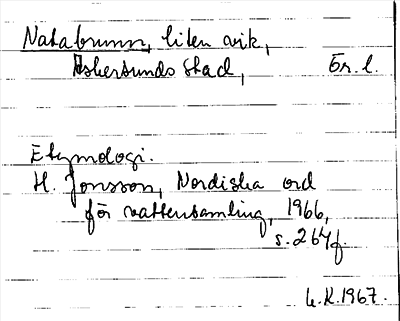 Natabrunn, liten vik,
Askersunds stad, Ör. l.
Etymologi.
H. Jonsson, Nordiska ord
för vattensamling, 1966,
s. 267f.
L.K.1967.